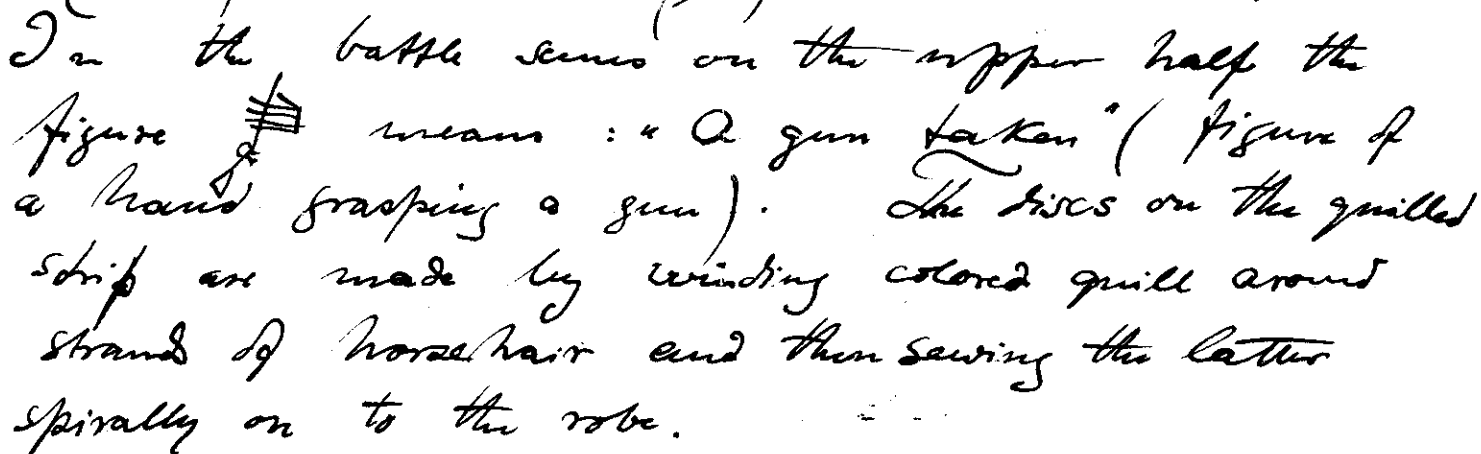 In the battle scenes on the upper half the
figure means : "A gun taken" ( figure of
a hand grasping a gun). The discs on the quilled
strip are made by winding colored quill around
strands of horsehair and then sewing the latter
spirally on to the robe.